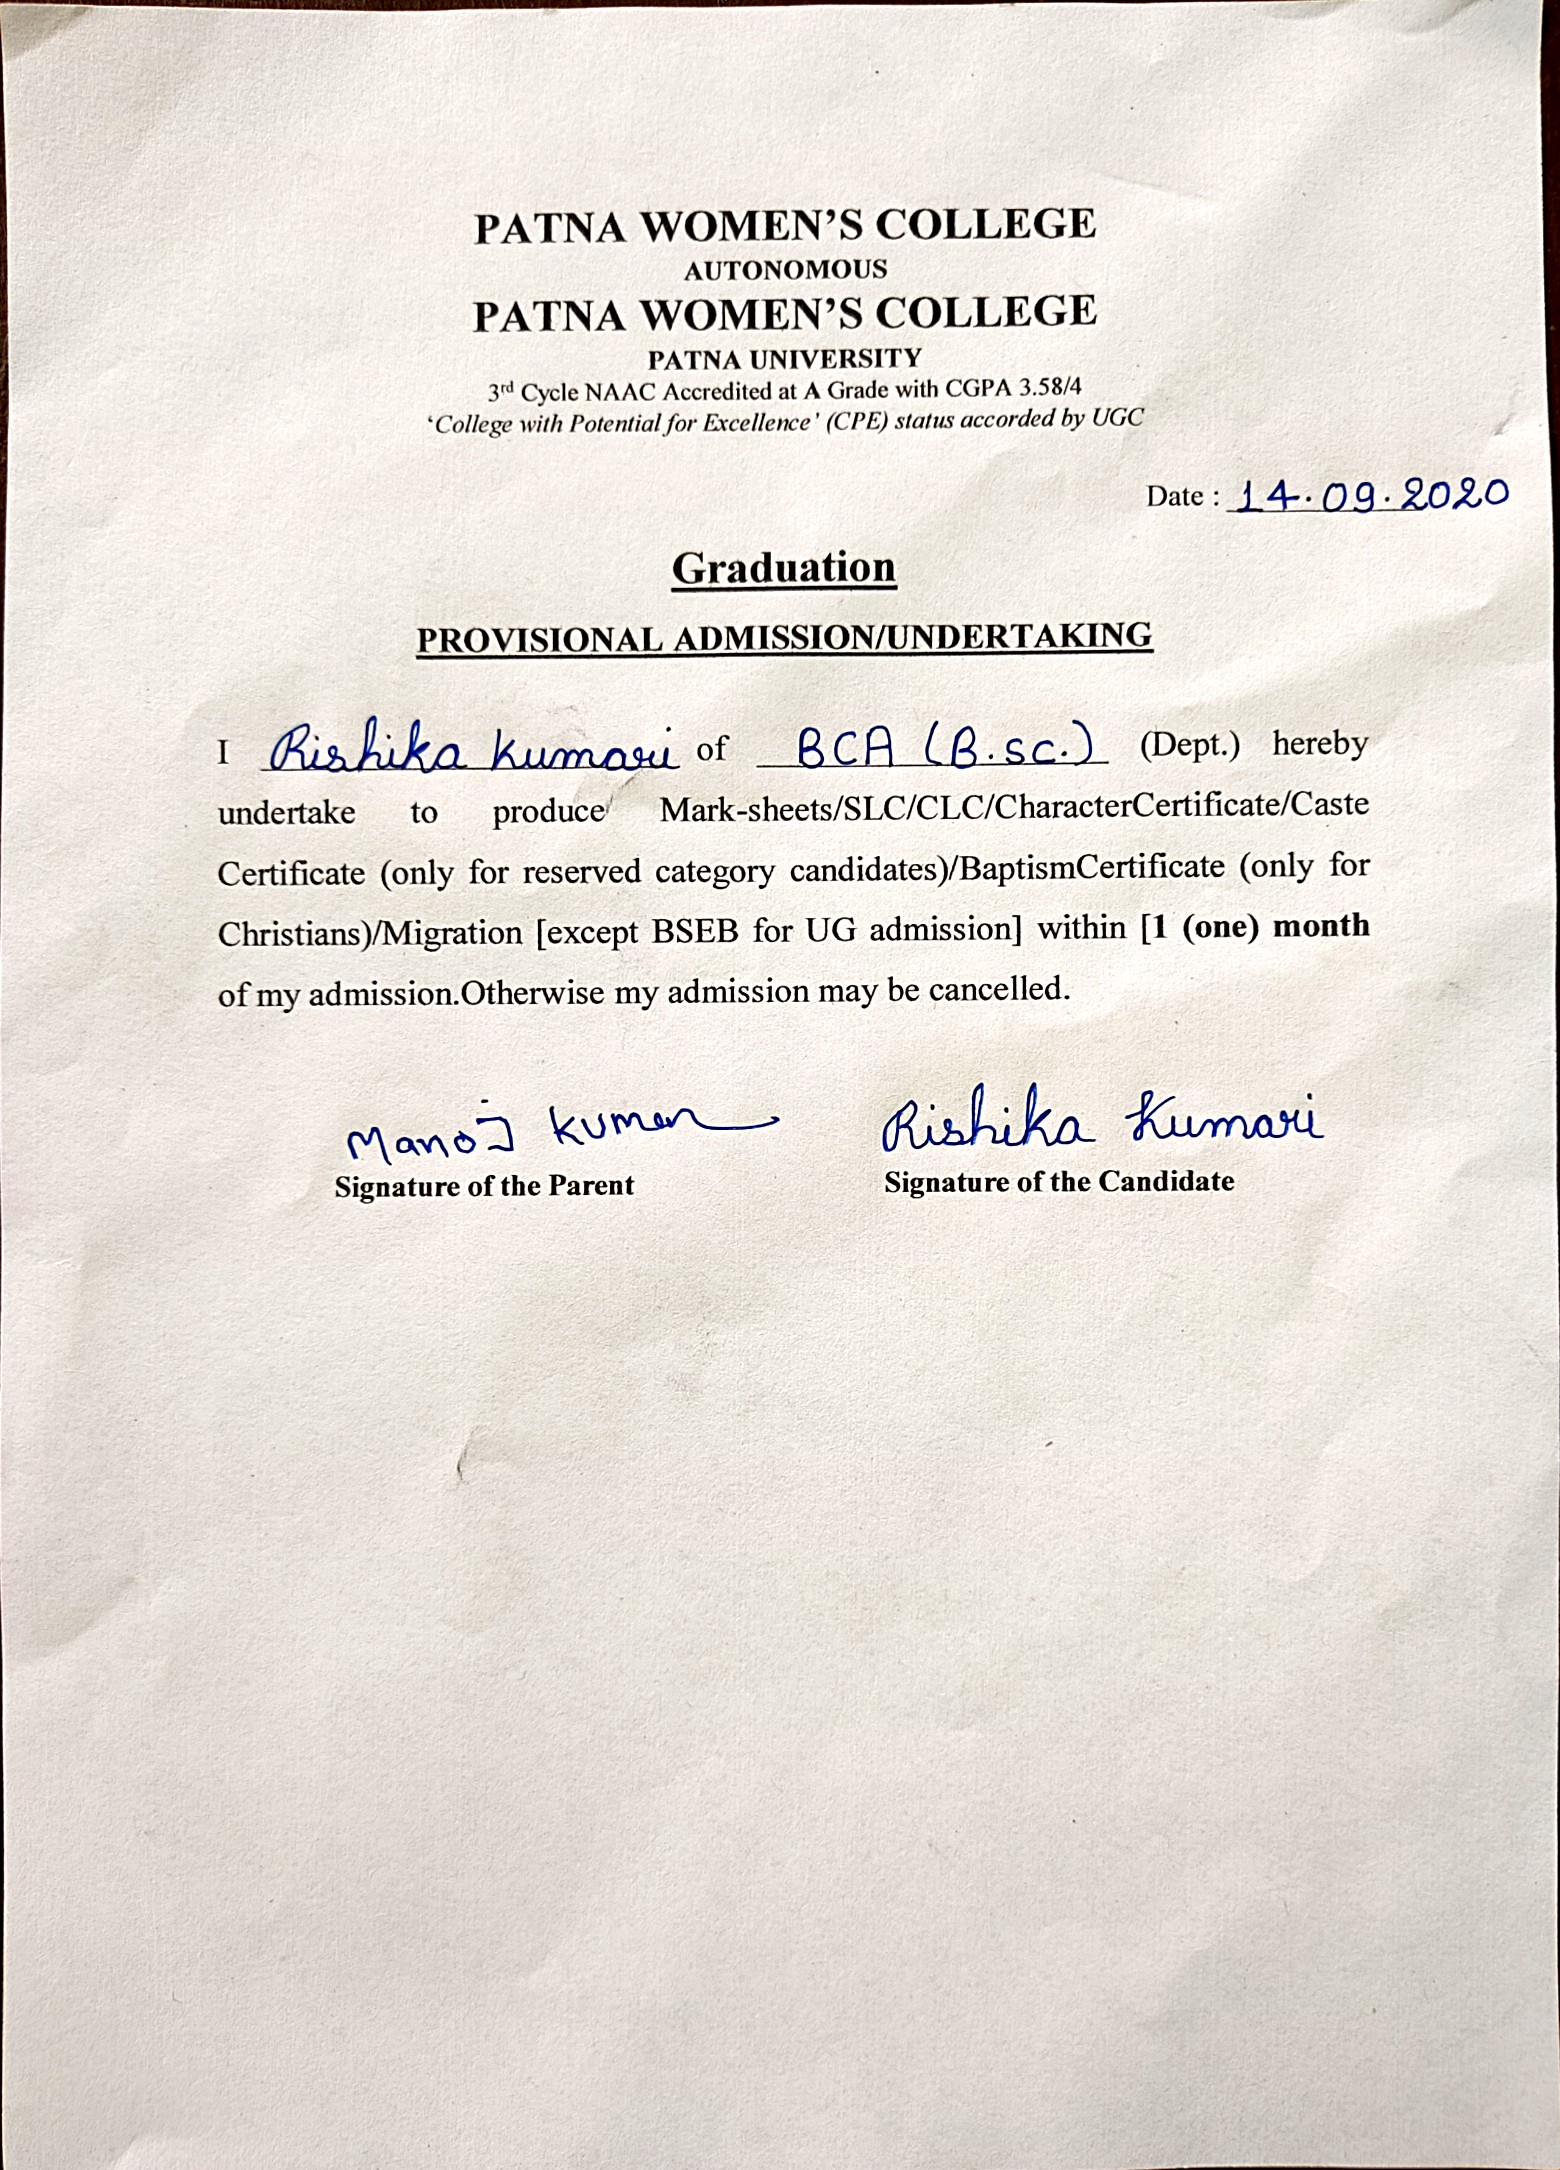 PATNA WOMEN'S COLLEGE
AUTONOMOUS
PATNA WOMEN'S COLLEGE
PATNA UNIVERSITY
3rd Cycle NAAC Accredited at A Grade with CGPA 3.58/4
'College with Potential for Excellence' (CPE) status accorded by UGC
Date : 14.09.2020
Graduation
PROVISIONAL ADMISSION/UNDERTAKING
I Rishika Kumari of BCA (B.sc.) (Dept.) hereby
undertake to produce Mark-sheets/SLC/CLC/CharacterCertificate/Caste
Certificate (only for reserved category candidates)/BaptismCertificate (only for
Christians)/Migration [except BSEB for UG admission] within [1 (one) month
of my admission.Otherwise my admission may be cancelled.
Manoj Kumar Rishika Kumari
Signature of the Parent Signature of the Candidate